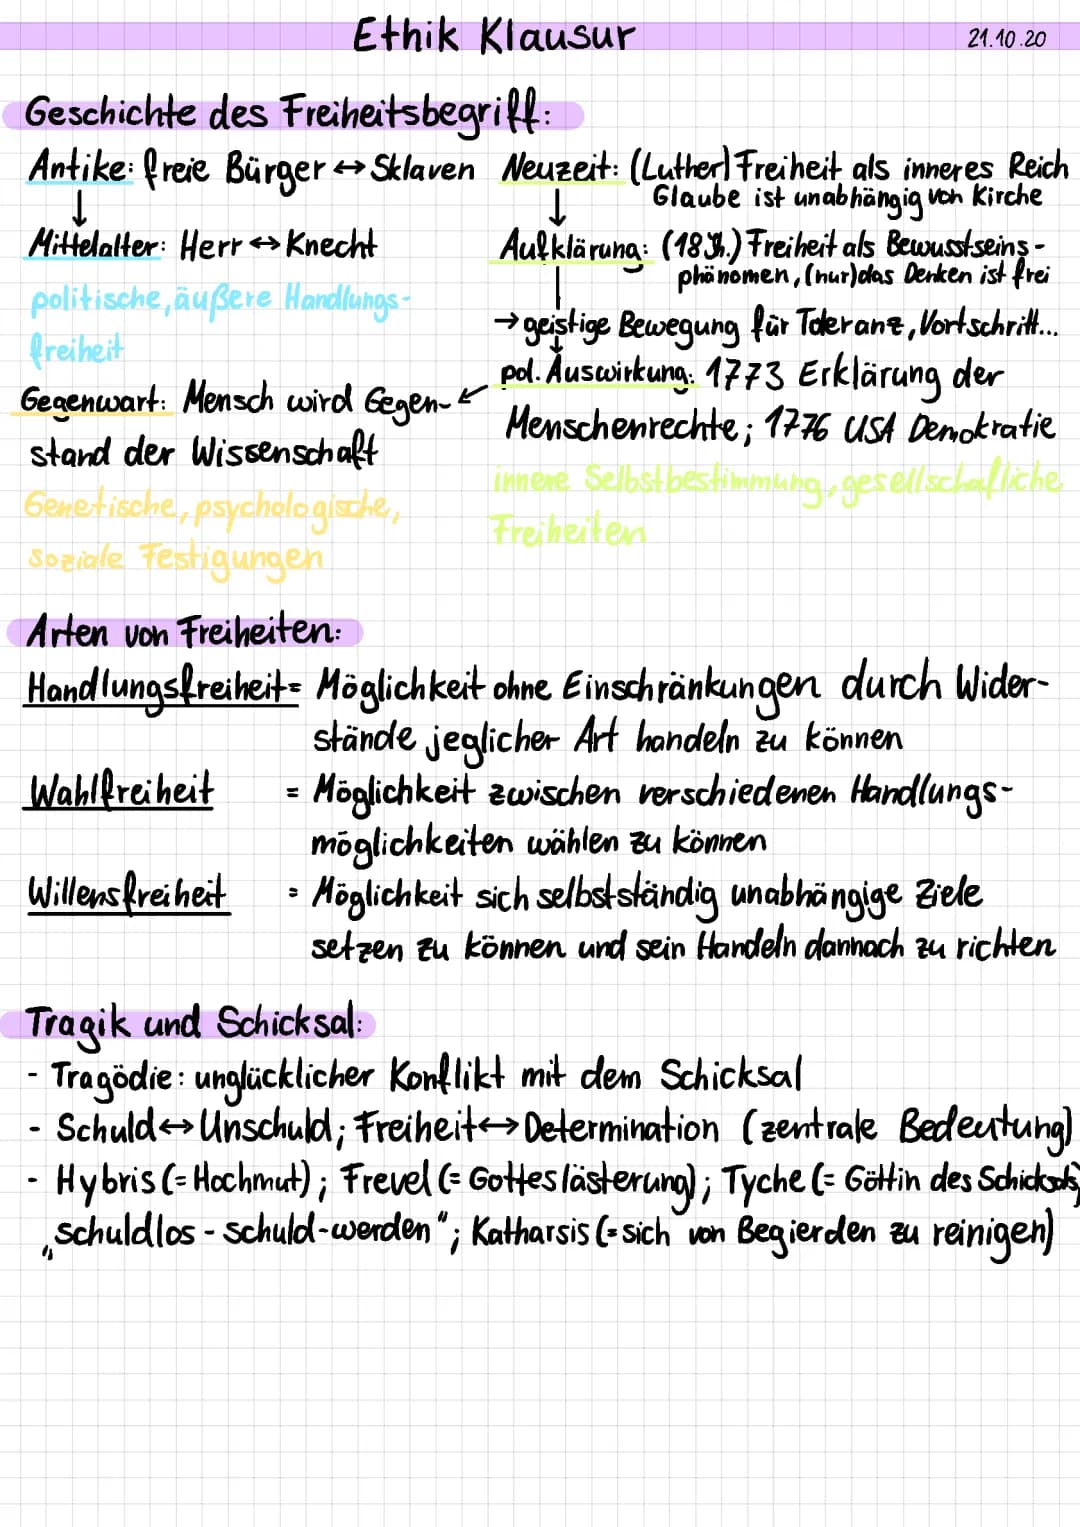 Ethik Klausur
21.10.20
Geschichte des Freiheitsbegriff:
Antike: freie Bürger ↔ Sklaven
↓
Mittelalter: Herr ↔ Knecht
politische, äußere Handlungs-
freiheit
Neuzeit: (Luther) Freiheit als inneres Reich
Glaube ist unabhängig von Kirche
↓
Aufklärung: (18 Jh.) Freiheit als Bewusstseins-
phänomen, (nur) das Denken ist frei
→ geistige Bewegung für Toleranz, Vortschritt...
pol. Auswirkung: 1773 Erklärung der
Menschenrechte; 1776 USA Demokratie
innere Selbstbestimmung, gesellschafliche
Freiheiten
Gegenwart: Mensch wird Gegen-
stand der Wissenschaft
Genetische, psychologische,
soziale Festigungen
Arten von Freiheiten:
Handlungsfreiheit = Möglichkeit ohne Einschränkungen durch Wider-
stände jeglicher Art handeln zu können
Wahlfreiheit = Möglichkeit zwischen verschiedenen Handlungs-
möglichkeiten wählen zu können
Willensfreiheit = Möglichkeit sich selbstständig unabhängige Ziele
setzen zu können und sein Handeln dannach zu richten
Tragik und Schicksal:
- Tragödie: unglücklicher Konflikt mit dem Schicksal
- Schuld ↔ Unschuld; Freiheit ↔ Determination (zentrale Bedeutung)
- Hybris (= Hochmut); Frevel (= Gotteslästerung); Tyche (= Göttin des Schicksals)
„schuldlos - schuld-werden"; Katharsis (= sich von Begierden zu reinigen)